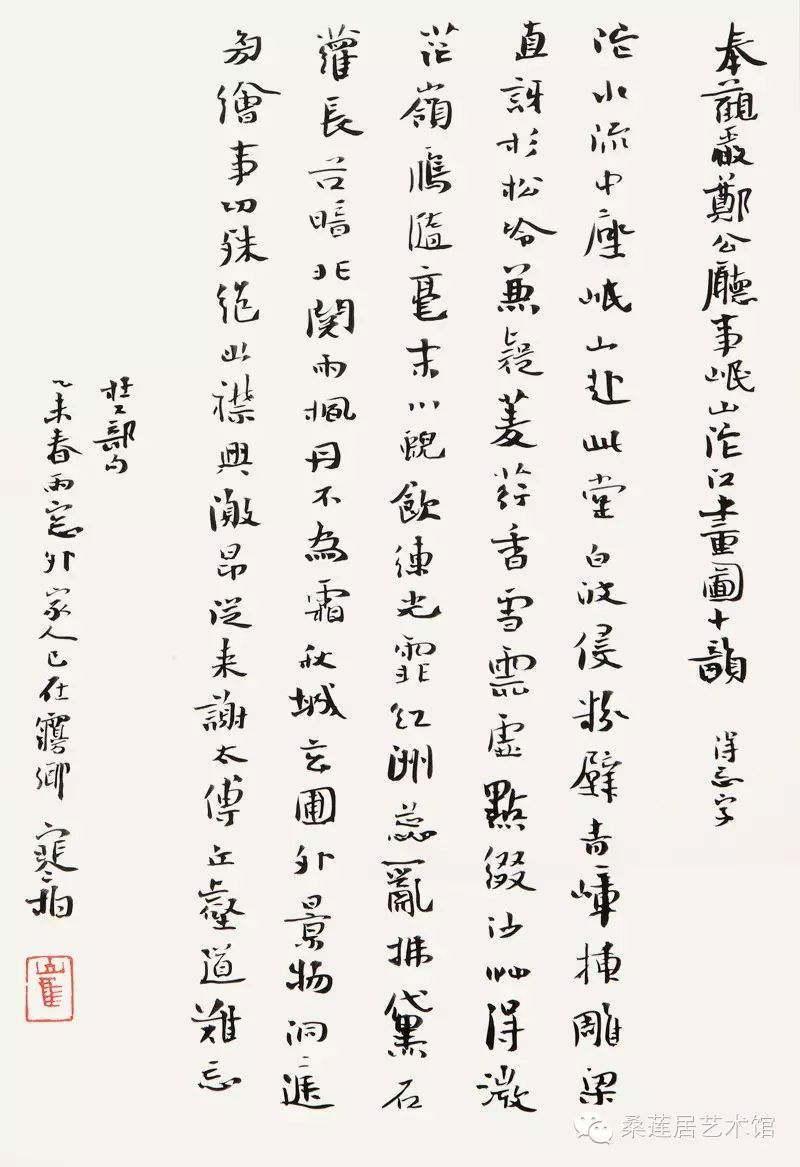 奉觀嚴鄭公廳事岷山沱江畫圖十韻 得忘字
沱水流中座岷山赴此堂白波侵粉壁青嶂插雕梁
直訝杉松冷兼疑菱荇香雪雲虛點綴沙艸得微
茫嶺鴈隨毫末川蜺飲練光霏紅洲蕊亂拂黛石
蘿長谷暗非關雨楓丹不為霜秋城玄圃外景物洞庭
旁繪事功殊絕幽襟興激昂從來謝太傅丘壑道難忘
杜工部句
乙未春雨窗外家人已在鄉 寒柏
桑莲居艺术馆